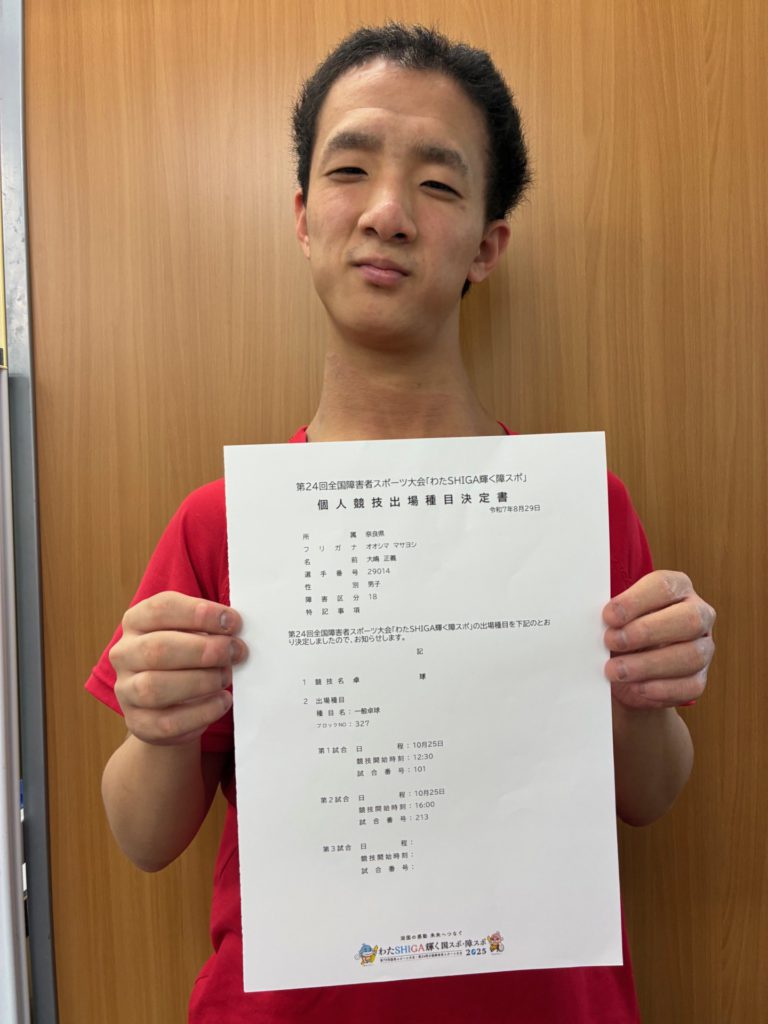 第24回全国障害者スポーツ大会「わたSHIGA輝く障スポ」
個人競技出場種目決定書
令和7年8月29日
所属 奈良県
フリガナ オオシマ マサヨシ
名前 大嶋 正義
選手番号 29014
性別 男子
障害区分 18
特記事項
第24回全国障害者スポーツ大会「わたSHIGA輝く障スポ」の出場種目を下記のとお
り決定しましたので、お知らせします。
記
1 競技名 卓球
2 出場種目
種目名：一般卓球
ブロックNO：327
第1試合 日程：10月25日
競技開始時刻：12:30
試合番号：101
第2試合 日程：10月25日
競技開始時刻：16:00
試合番号：213
第3試合 日程：
競技開始時刻：
試合番号：
湖国の感動 未来へつなぐ
わたSHIGA輝く国スポ・障スポ
2025